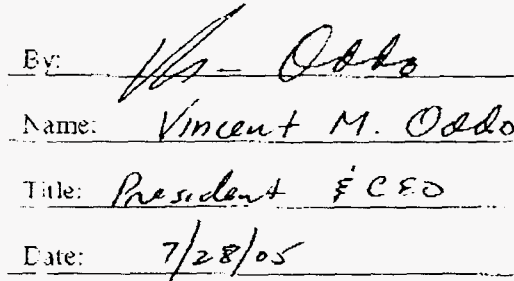 By: Oddo
Name: Vincent M. Oddo
Title: President & CEO
Date: 7/28/05